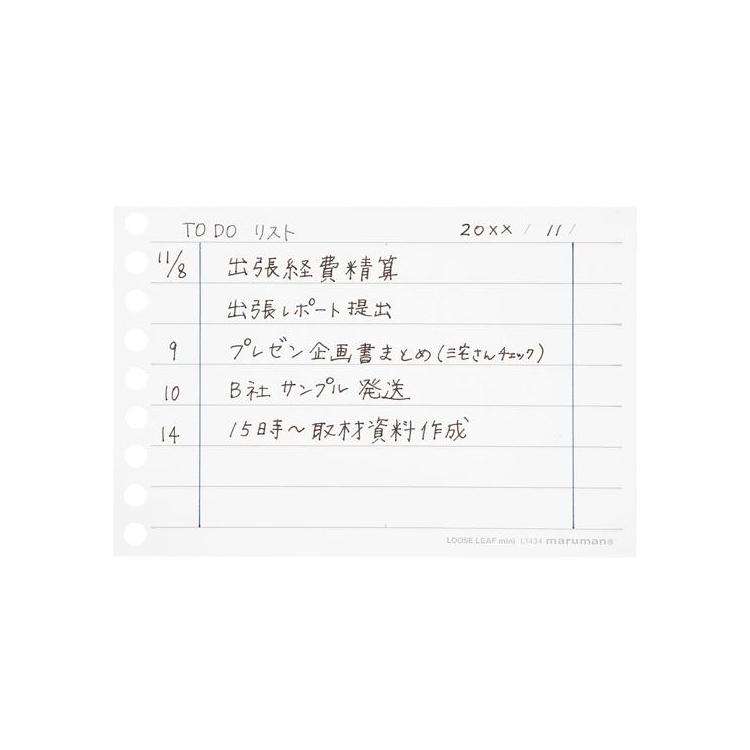 TO DO リスト 20XX / 11 /
11/8 出張経費精算
出張レポート提出
9 プレゼン企画書まとめ(三宅さんチェック)
10 B社サンプル発送
14 15時～取材資料作成
LOOSE LEAF mini L1434 maruman®